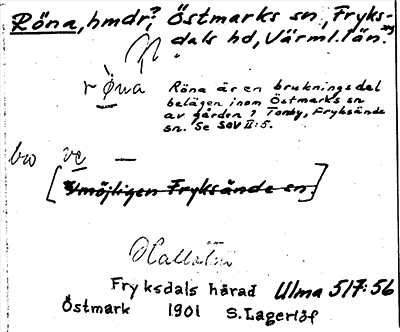 Röna, hmdr? Östmarks sn, Fryks-
dals hd, Värml. län.
röna
Röna är en brukningsdel
belägen inom Östmarks sn
av gården ? Tomby, Fryksände
sn. Se SOV II:5.
bo
[möjligen Fryksände sn.]
Fryksdals härad Ulma 517:56
Östmark 1901 S. Lagerlöf